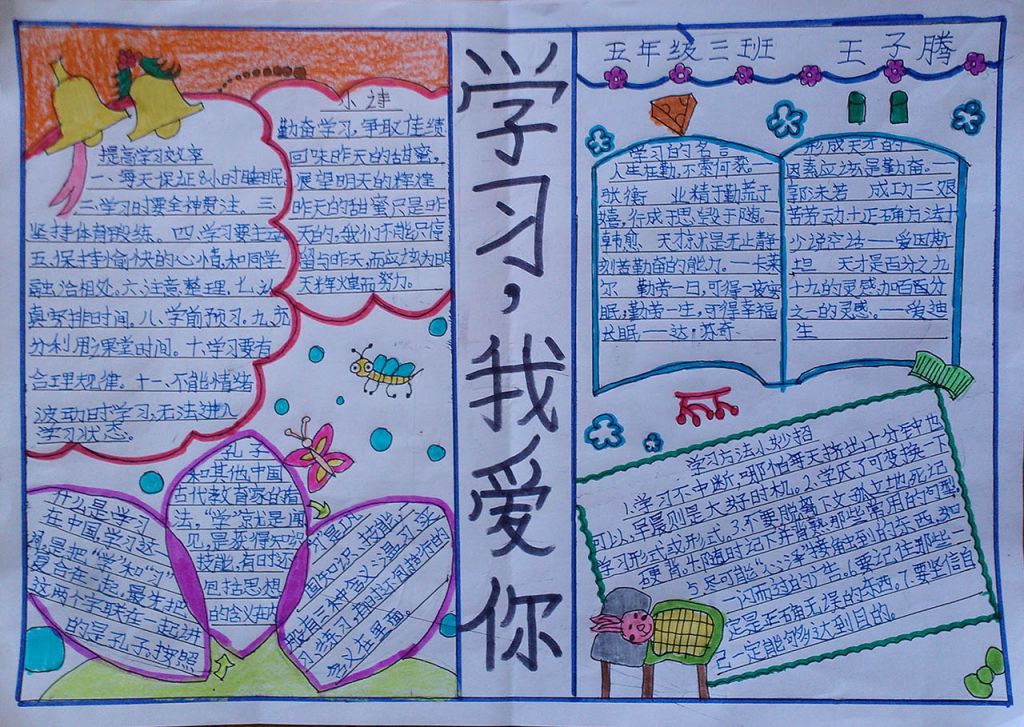 学习，我爱你
五年级三班 王子腾
提高学习效率
一、每天保证8小时睡眠
二、学习时要全神贯注。三、
坚持体育锻练。四、学习要主动
五、保持愉快的心情，和同学
融洽相处。六、注意整理，七、认
真安排时间。八、学前预习。九、充
分利用课堂时间。十、学习要有
合理规律。十一、不能情绪
波动时学习，无法进入
学习状态。
勤奋学习，争取佳绩
回味昨天的甜蜜，
展望明天的辉煌
昨天的甜蜜只是昨
天的，我们不能只停
留与昨天，而应该为明
天辉煌而努力。
什么是学习
在中国，学习这
词是把“学”和“习”
复合在一起，最先把
这两个字联在一起讲
的是孔子。按照
孔子
和其他中国
古代教育家的指
法，“学”就是闻
见，是获得知识
技能，有时还
包括思想
的含义在内
学习的名言
人生在勤，不索何获。
张衡 业精于勤荒于
嬉，行成于思毁于随。—
韩愈 天才就是无止静
刻苦勤奋的能力。——卡莱
尔 勤劳一日，可得一夜安
眠；勤劳一生，可得幸福
长眠——达·芬奇
形成天才的
因素应该是勤奋。
郭沫若 成功=艰
苦劳动+正确方法+
少说空话——爱因斯
坦 天才是百分之九
十九的灵感加百分
之一的灵感。——爱迪
生
学习方法小妙招
1.学习不中断，哪怕每天挤出十分钟也
可以，早晨则是大好时机。2.学厌了可变换一下
学习形式或形式。3.不要脱离下文孤立地死记
硬背。4.随时记下并背熟那些常用的句型
一闪而过的广告。6.要记住那些
定是正确无误的东西。7.要坚信自
己一定能够达到目的。